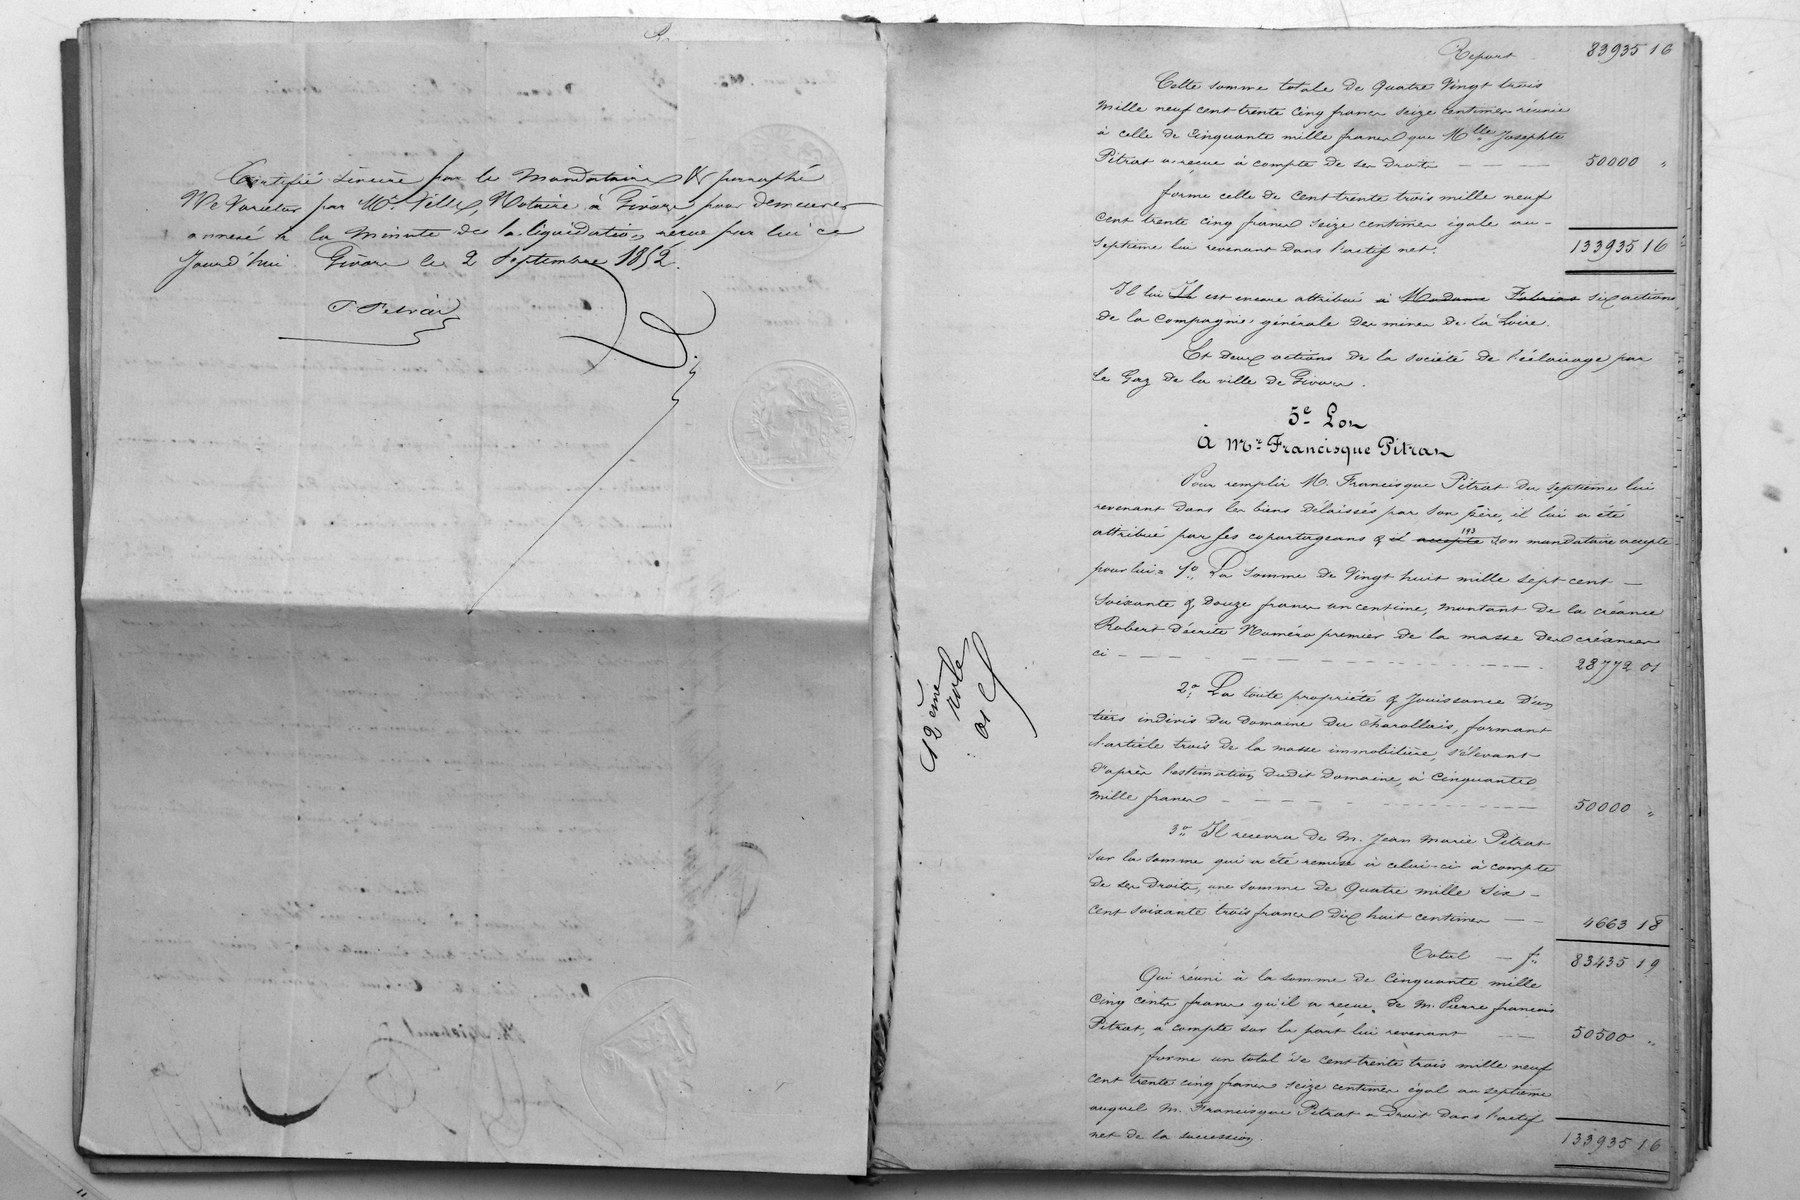 Certifié sincère par le Mandataire & paraphé
Ne Varietur par Me Vellu, Notaire à Givors, pour demeurer
annexé à la Minute de la liquidation reçue par lui ce
jourd'hui Givors le 2 Septembre 1852.
Report 83935 16
Cette somme totale de Quatre Vingt trois
mille neuf cent trente cinq francs seize centimes réunie
à celle de cinquante mille francs que Mlle Josephte
Pitrat a reçue à compte de ses droits 50000 "
forme celle de cent trente trois mille neuf
cent trente cinq francs seize centimes égale au
septième lui revenant dans l'actif net. 133935 16
Il lui Il est encore attribué à Madame six actions
de la Compagnie générale des mines de la Loire.
Et deux actions de la société de l'éclairage par
le Gaz de la ville de Givors.
5e Lot
à Mr Francisque Pitrat
Pour remplir M. Francisque Pitrat du septième lui
revenant dans les biens délaissés par son père, il lui a été
attribué par ses copartageans & il accepte son mandataire accepte
193
pour lui = 1o La somme de Vingt huit mille sept cent
soixante & douze francs un centime, montant de la créance
Robert décrite Numéro premier de la masse des créances
ci 28772 01
2o La toute propriété & jouissance d'un
tiers indivis du Domaine du Charollais, formant
l'article trois de la masse immobilière, s'élevant
d'après l'estimation dudit Domaine, à cinquante
mille francs 50000 "
3o Il recevra de M. Jean Marie Pitrat
sur la somme qui a été remise à celui-ci à compte
de ses droits, une somme de Quatre mille six
cent soixante trois francs dix huit centimes 4663 18
Total f. 83435 19
Qui réuni à la somme de Cinquante mille
cinq cents francs qu'il a reçue de M. Pierre françois
Pitrat, à compte sur la part lui revenant 50500 "
forme un total de cent trente trois mille neuf
cent trente cinq francs seize centimes égal au septième
auquel M. Francisque Pitrat a Droit dans l'actif
net de la succession. 133935 16
12ème
role